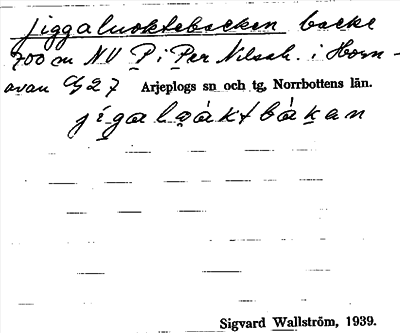 Jiggaluoktebacken backe
700 m NV P i Per Nilsah. i Horn-
avan Gj 27 Arjeplogs sn och tg, Norrbottens län.
jigalọàktbàkan
Sigvard Wallström, 1939.